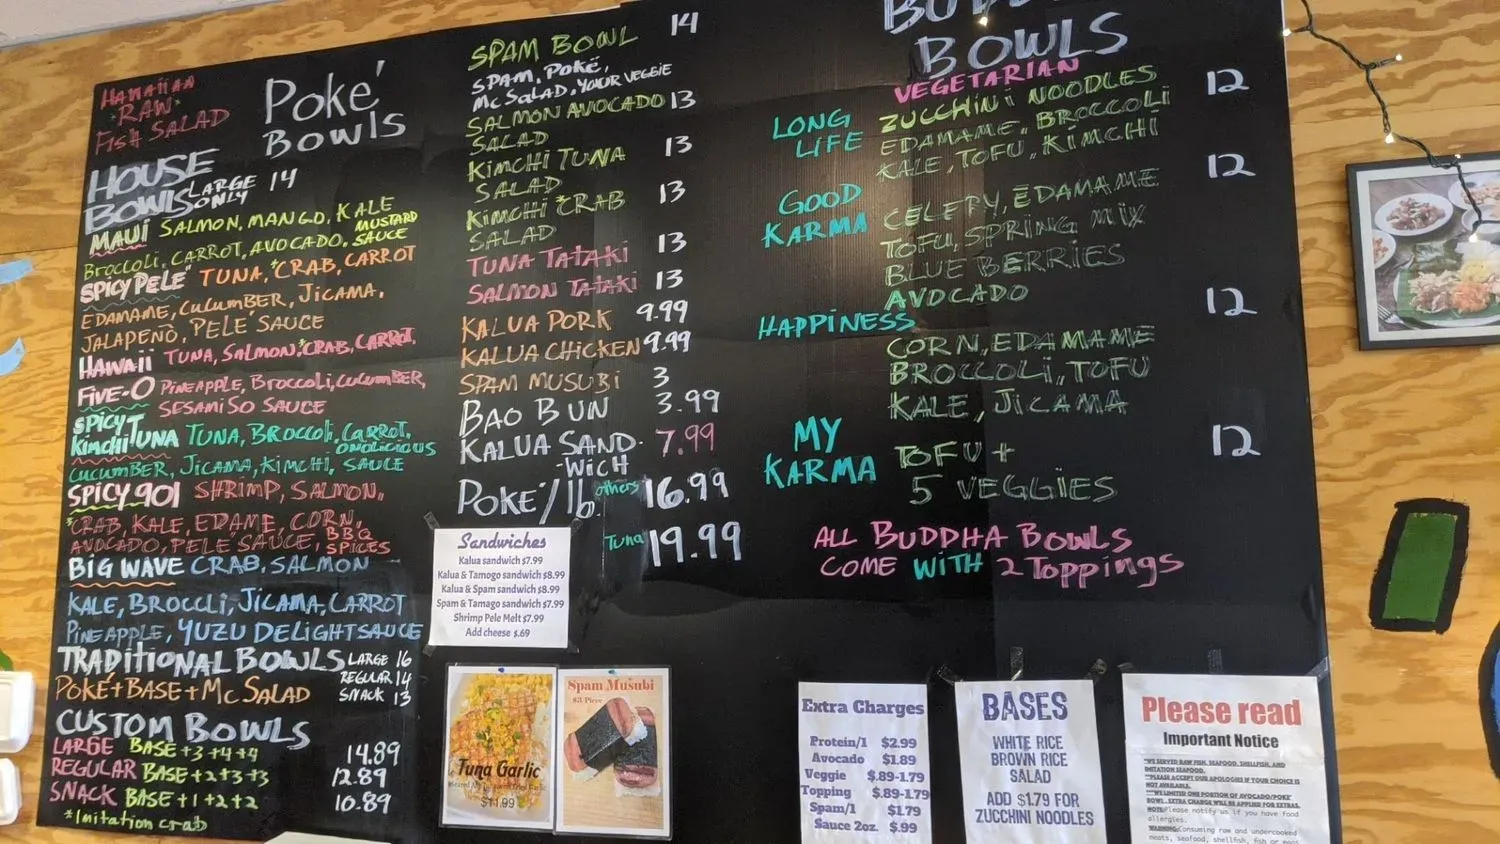 HAWAIIAN
RAW
FISH SALAD
POKÉ
BOWLS
HOUSE
BOWLS LARGE ONLY 14
MAUI SALMON, MANGO, KALE
BROCCOLI, CARROT, AVOCADO, MUSTARD SAUCE
SPICY PELE" TUNA, *CRAB, CARROT
EDAMAME, CUCUMBER, JICAMA,
JALAPEÑO, PELE' SAUCE
HAWAII TUNA, SALMON, *CRAB, CARROT,
FIVE-O PINEAPPLE, BROCCOLI, CUCUMBER,
SESAMI SO SAUCE
SPICY
KIMCHI TUNA TUNA, BROCCOLI, CARROT,
CUCUMBER, JICAMA, KIMCHI, ONOLICIOUS SAUCE
SPICY 901 SHRIMP, SALMON,
*CRAB, KALE, EDAME, CORN,
AVOCADO, PELE' SAUCE, BBQ SPICES
BIG WAVE CRAB, SALMON
KALE, BROCCLI, JICAMA, CARROT
PINEAPPLE, YUZU DELIGHT SAUCE
TRADITIONAL BOWLS LARGE 16
REGULAR 14
POKÉ + BASE + MC SALAD SNACK 13
CUSTOM BOWLS
LARGE BASE +3+4+4 14.89
REGULAR BASE +2+3+3 12.89
SNACK BASE +1+2+2 10.89
*Imitation crab
SPAM BOWL 14
SPAM, POKÉ,
MC SALAD, YOUR VEGGIE
SALMON AVOCADO 13
SALAD
KIMCHI TUNA 13
SALAD
KIMCHI *CRAB 13
SALAD
TUNA TATAKI 13
SALMON TATAKI 13
KALUA PORK 9.99
KALUA CHICKEN 9.99
SPAM MUSUBI 3
BAO BUN 3.99
KALUA SAND- 7.99
-WICH
POKÉ/lb. others 16.99
Tuna 19.99
Sandwiches
Kalua sandwich $7.99
Kalua & Tamogo sandwich $8.99
Kalua & Spam sandwich $8.99
Spam & Tamago sandwich $7.99
Shrimp Pele Melt $7.99
Add cheese $.69
Tuna Garlic
$11.99
Spam Musubi
$3/Piece
BUDDHA
BOWLS
VEGETARIAN
LONG LIFE ZUCCHINI NOODLES 12
EDAMAME, BROCCOLI
KALE, TOFU, KIMCHI
GOOD KARMA CELERY, EDAMAME 12
TOFU, SPRING MIX
BLUE BERRIES
AVOCADO
HAPPINESS 12
CORN, EDAMAME
BROCCOLI, TOFU
KALE, JICAMA
MY KARMA TOFU + 12
5 VEGGIES
ALL BUDDHA BOWLS
COME WITH 2 TOPPINGS
Extra Charges
Protein/1 $2.99
Avocado $1.89
Veggie $.89-1.79
Topping $.89-1.79
Spam/1 $1.79
Sauce 2oz. $.99
BASES
WHITE RICE
BROWN RICE
SALAD
ADD $1.79 FOR
ZUCCHINI NOODLES
Please read
Important Notice
*WE SERVED RAW FISH, SEAFOOD, SHELLFISH, AND
IMITATION SEAFOOD.
**PLEASE ACCEPT OUR APOLOGIES IF YOUR CHOICE IS
NOT AVAILABLE.
***WE LIMITED ONE PORTION OF AVOCADO/POKE'
BOWL. EXTRA CHARGE WILL BE APPLIED FOR EXTRAS.
NOTE: Please notify us if you have food
allergies.
WARNING: Consuming raw and undercooked
meats, seafood, shellfish, fish or eggs